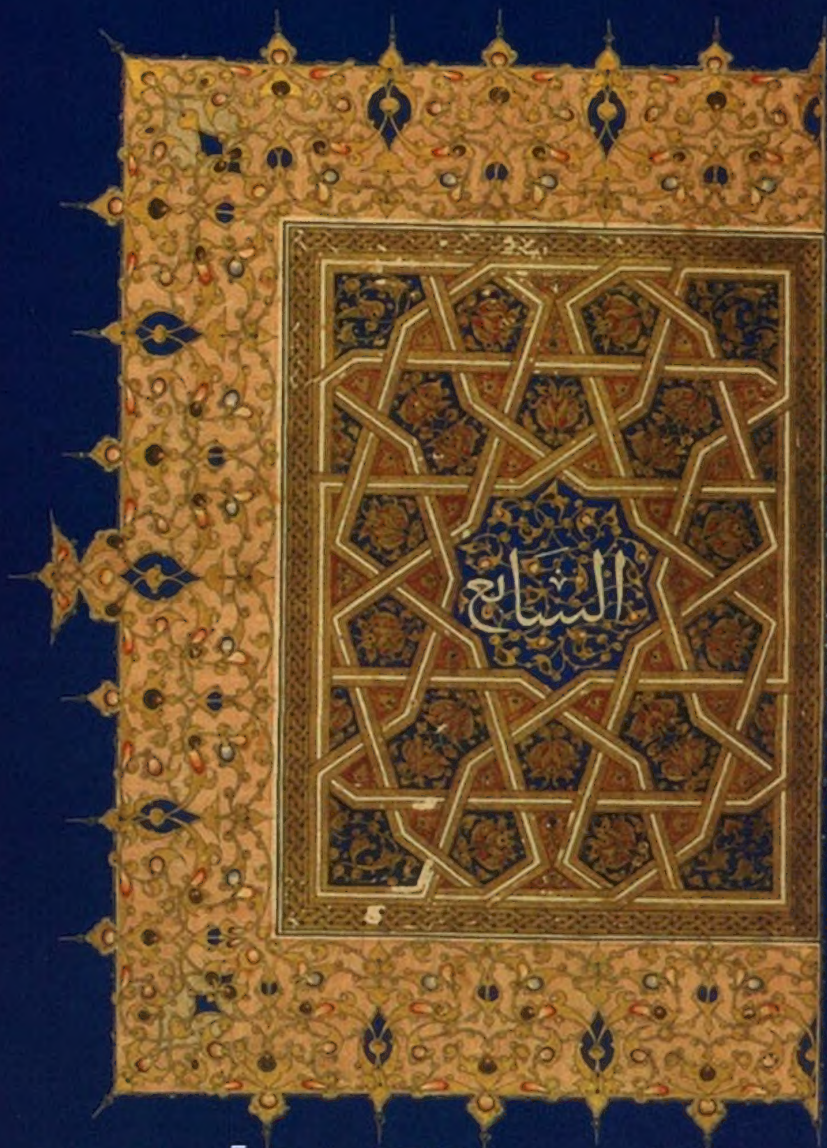 السَابع